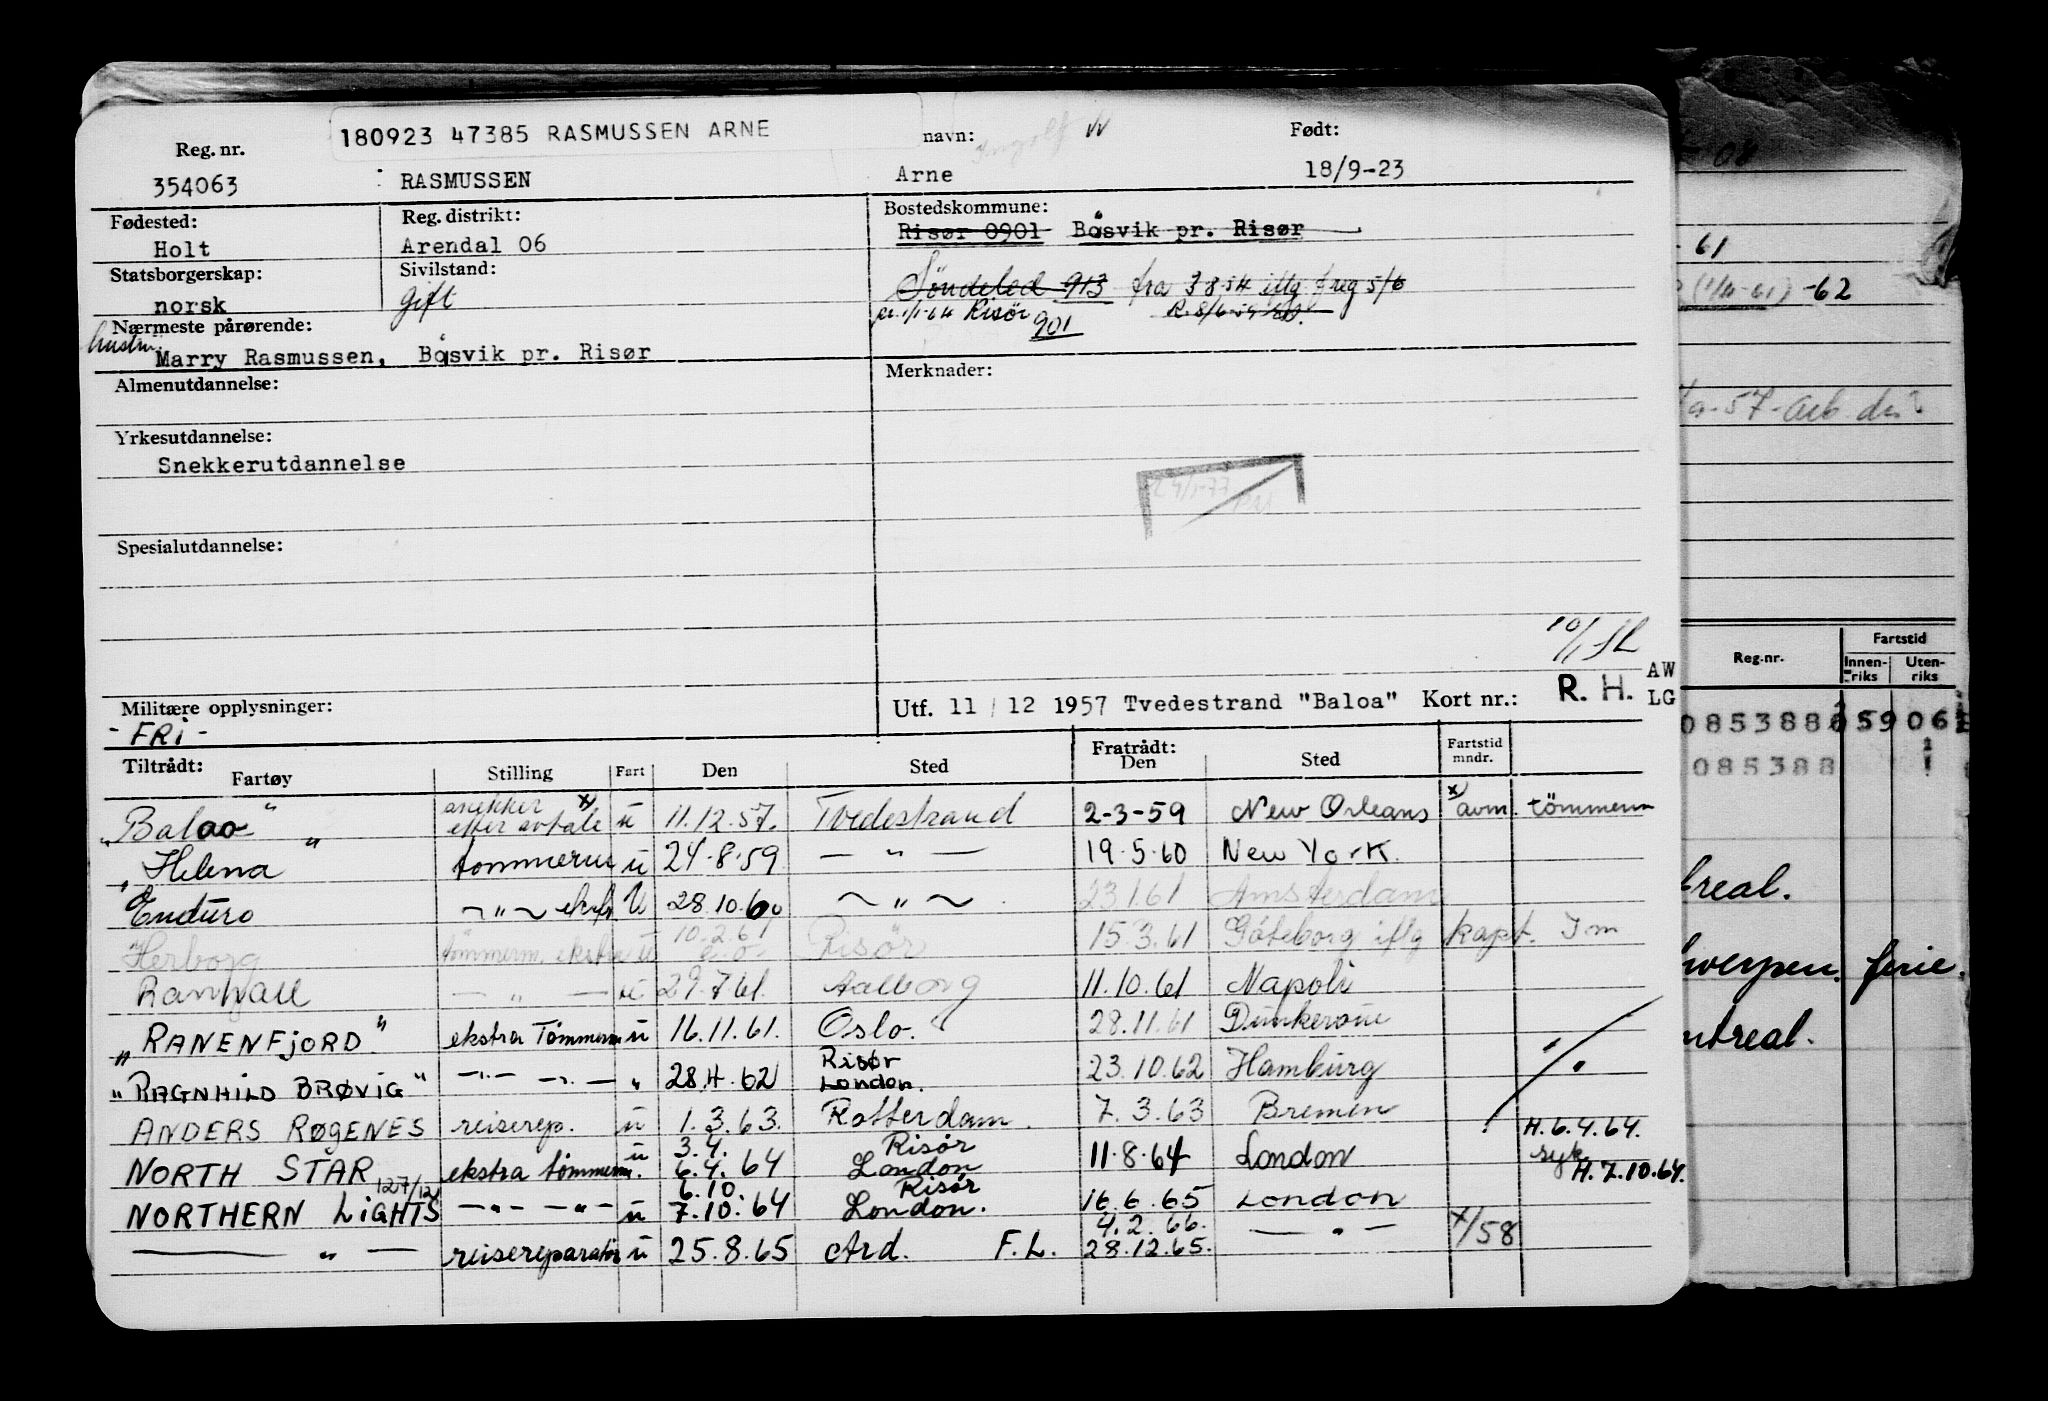 180923 47385 RASMUSSEN ARNE
Reg. nr. navn: Ingolf W Født:
354063 RASMUSSEN Arne 18/9-23
Fødested: Reg. distrikt: Bostedskommune:
Holt Arendal 06 Risør 0901 Båsvik pr. Risør
Statsborgerskap: Sivilstand:
norsk gift Söndeled 913 fra 3-8-54 iflg freg 5/6
fr. 1/1-64 Risör 901 R. 8/6-59
Nærmeste pårørende:
hustru Marry Rasmussen, Båsvik pr. Risør
Almenutdannelse: Merknader:
Yrkesutdannelse:
Snekkerutdannelse
Spesialutdannelse:
10/1 SL
AW
Militære opplysninger: Utf. 11/12 1957 Tvedestrand "Baloa" Kort nr.: R. H. LG
- FRi -
Tiltrådt: Fratrådt: Fartstid
Fartøy Stilling Fart Den Sted Den Sted mndr.
"Balao" snekker x) efter avtale u 11.12.57. Tvedestrand 2-3-59 New Orleans x) avm. tömmerm
"Helena" tömmerm u 24.8.59 — " — 19.5.60 New York.
Enduro — " — ekstr U 28.10.60 — " — 23.1.61 Amsterdam
Herborg tömmerm. ekstra u 10.2.61 Risör 15.3.61 Göteborg iflg kapt. Im
Ranvall — " — u 29.7.61. Aalborg 11.10.61 Napoli
"RANENFJORD" ekstra Tömmerm u 16.11.61. Oslo. 28.11.61 Dunkerque
"RAGNHILD BRØVIG" —"— —"— " 28.4.62 Risør London. 23.10.62 Hamburg
ANDERS RØGENES reiserep. u 1.3.63. Rotterdam. 7.3.63 Bremen
H.6.4.64.
NORTH STAR ekstra tömmerm. u 3.4. 6.4.64 Risör London 11.8.64 London syk
H.7.10.64.
NORTHERN LiGHTS 127/12 —"— —"— u 6.10. 7.10.64 Risör London. 16.6.65 London
— " — reisereparatör u 25.8.65 Ard. F.L. 4.2.66. 28.12.65. — " — x/58
08
61
(1/11-61) -62
-57-arb
Reg.nr. Fartstid
Innen-riks Uten-riks
085388
real.
ferie.
ntreal.